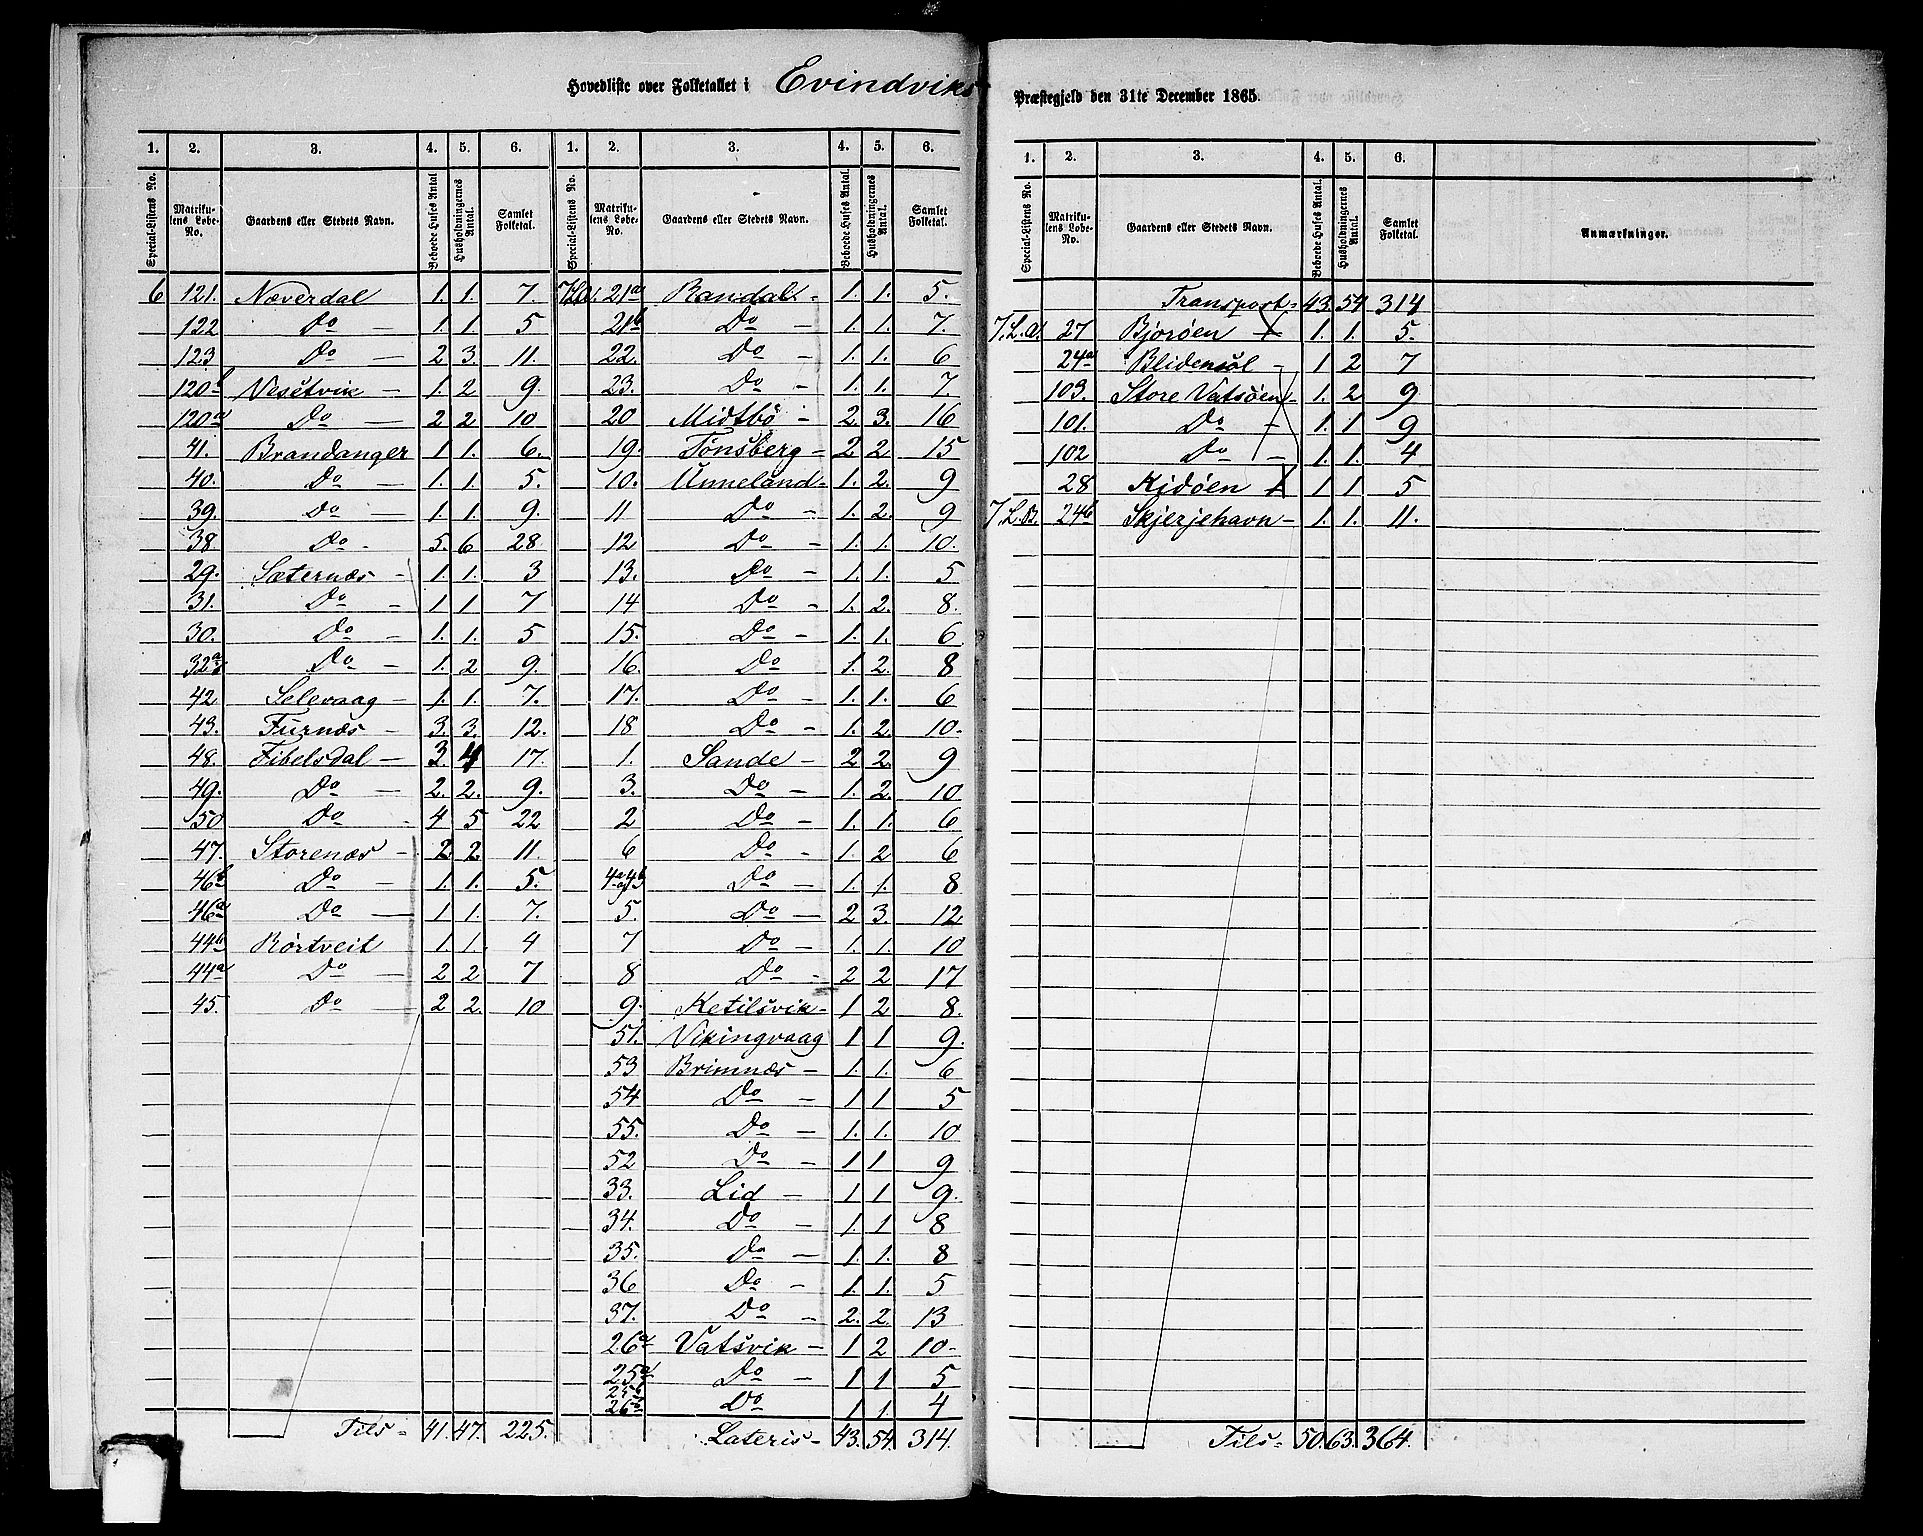 Hovedliste over Folketallet i Evindviks Præstegjeld den 31te December 1865.
1. 2. 3. 4. 5. 6. 1. 2. 3. 4. 5. 6.
Special-Listens No. Matrikulens Løbe-No. Gaardens eller Stedets Navn. Beboede Huses Antal Husholdningernes Antal. Samlet Folketal. Special-Listens No. Matrikulens Løbe-No. Gaardens eller Stedets Navn. Beboede Huses Antal. Husholdningernes Antal. Samlet Folketal.
6 121. Næverdal 1. 1. 7.
122 Do — 1. 1. 5
123 Do — 2. 3. 11.
120b Nesetvik — 1. 2 9.
120a Do — 2 2 10
41. Brandanger 1 1. 6.
40. Do — 1. 1. 5.
39. Do — 1. 1. 9.
38. Do - 5. 6 28
29. Sæternæs - 1. 1. 3
31. Do - 1 1. 7
30. Do — 1. 1. 5
32a Do — 1. 2 9.
42 Selevaag - 1. 1. 7.
43. Furnæs - 3. 3. 12.
48. Fibelsdal — 3 4 17.
49. Do — 2. 2. 9.
50 Do - 4 5 22
47. Storenæs - 2 2. 11.
46b Do — 1. 1. 5.
46a Do — 1 1. 7.
44b Rörtveit 1. 1. 4
44a Do — 2 2 7
45. Do — 2 2. 10
Tils - 41. 47. 225.
7.L.a. 21a Randal - 1. 1. 5.
21b Do — 1. 1. 7.
22. Do — 1. 1. 6
23. Do — 1. 1. 7.
20 Midtbö — 2. 3. 16
19. Tönsberg — 2 2. 15
10. Unneland - 1. 2. 9
11 Do — 1. 2. 9
12 Do — 1. 1. 10.
13. Do — 1. 1. 5
14 Do — 1. 2. 8.
15. Do — 1. 1. 6
16. Do 1. 2. 8
17. Do — 1. 1. 6
18 Do — 1. 2. 10.
1. Sande — 2 2. 9
3. Do — 1. 2. 10
2 Do — 1. 1. 6
6 Do - 1. 2 6
4a 4b Do — 1. 1. 8
5. Do — 2 3. 12
7 Do — 1. 1. 10
8 Do - 2 2 17
9. Ketilsvik - 1 2 8.
51. Vikingvaag 1 1 9.
53 Brimnæs — 1. 1. 6
54 Do — 1 1 5
55. Do — 1. 1. 10
52 Do — 1 1 9
33. Lid — 1 1 9.
34. Do — 1. 1 8
35. Do — 1. 1. 8
36 Do - 1. 1. 5
37. Do — 2. 2. 13
26a Vatsvik — 1 2 10-
25a Do — 1 1 5
25b 26b Do 1 1. 4
Lateris - 43. 54. 314.
1. 2. 3. 4. 5. 6.
Special-Listens No. Matrikulens Løbe-No. Gaardens eller Stedets Navn. Beboede Huses Antal. Husholdningernes Antal. Samlet Folketal. Anmærkninger.
Transport - 43. 54 314
7.L.a. 27 Bjoröen — 1. 1. 5.
24a Blidensöl - 1 2 7
103. Store Vatsöen - 1. 2 9
101. Do — 1. 1 9
102 Do — 1. 1. 4
28 Kidöen 1 1 5
7.L.B. 24b Skjerjehavn - 1. 1. 11.
Tils - 50. 63. 364.